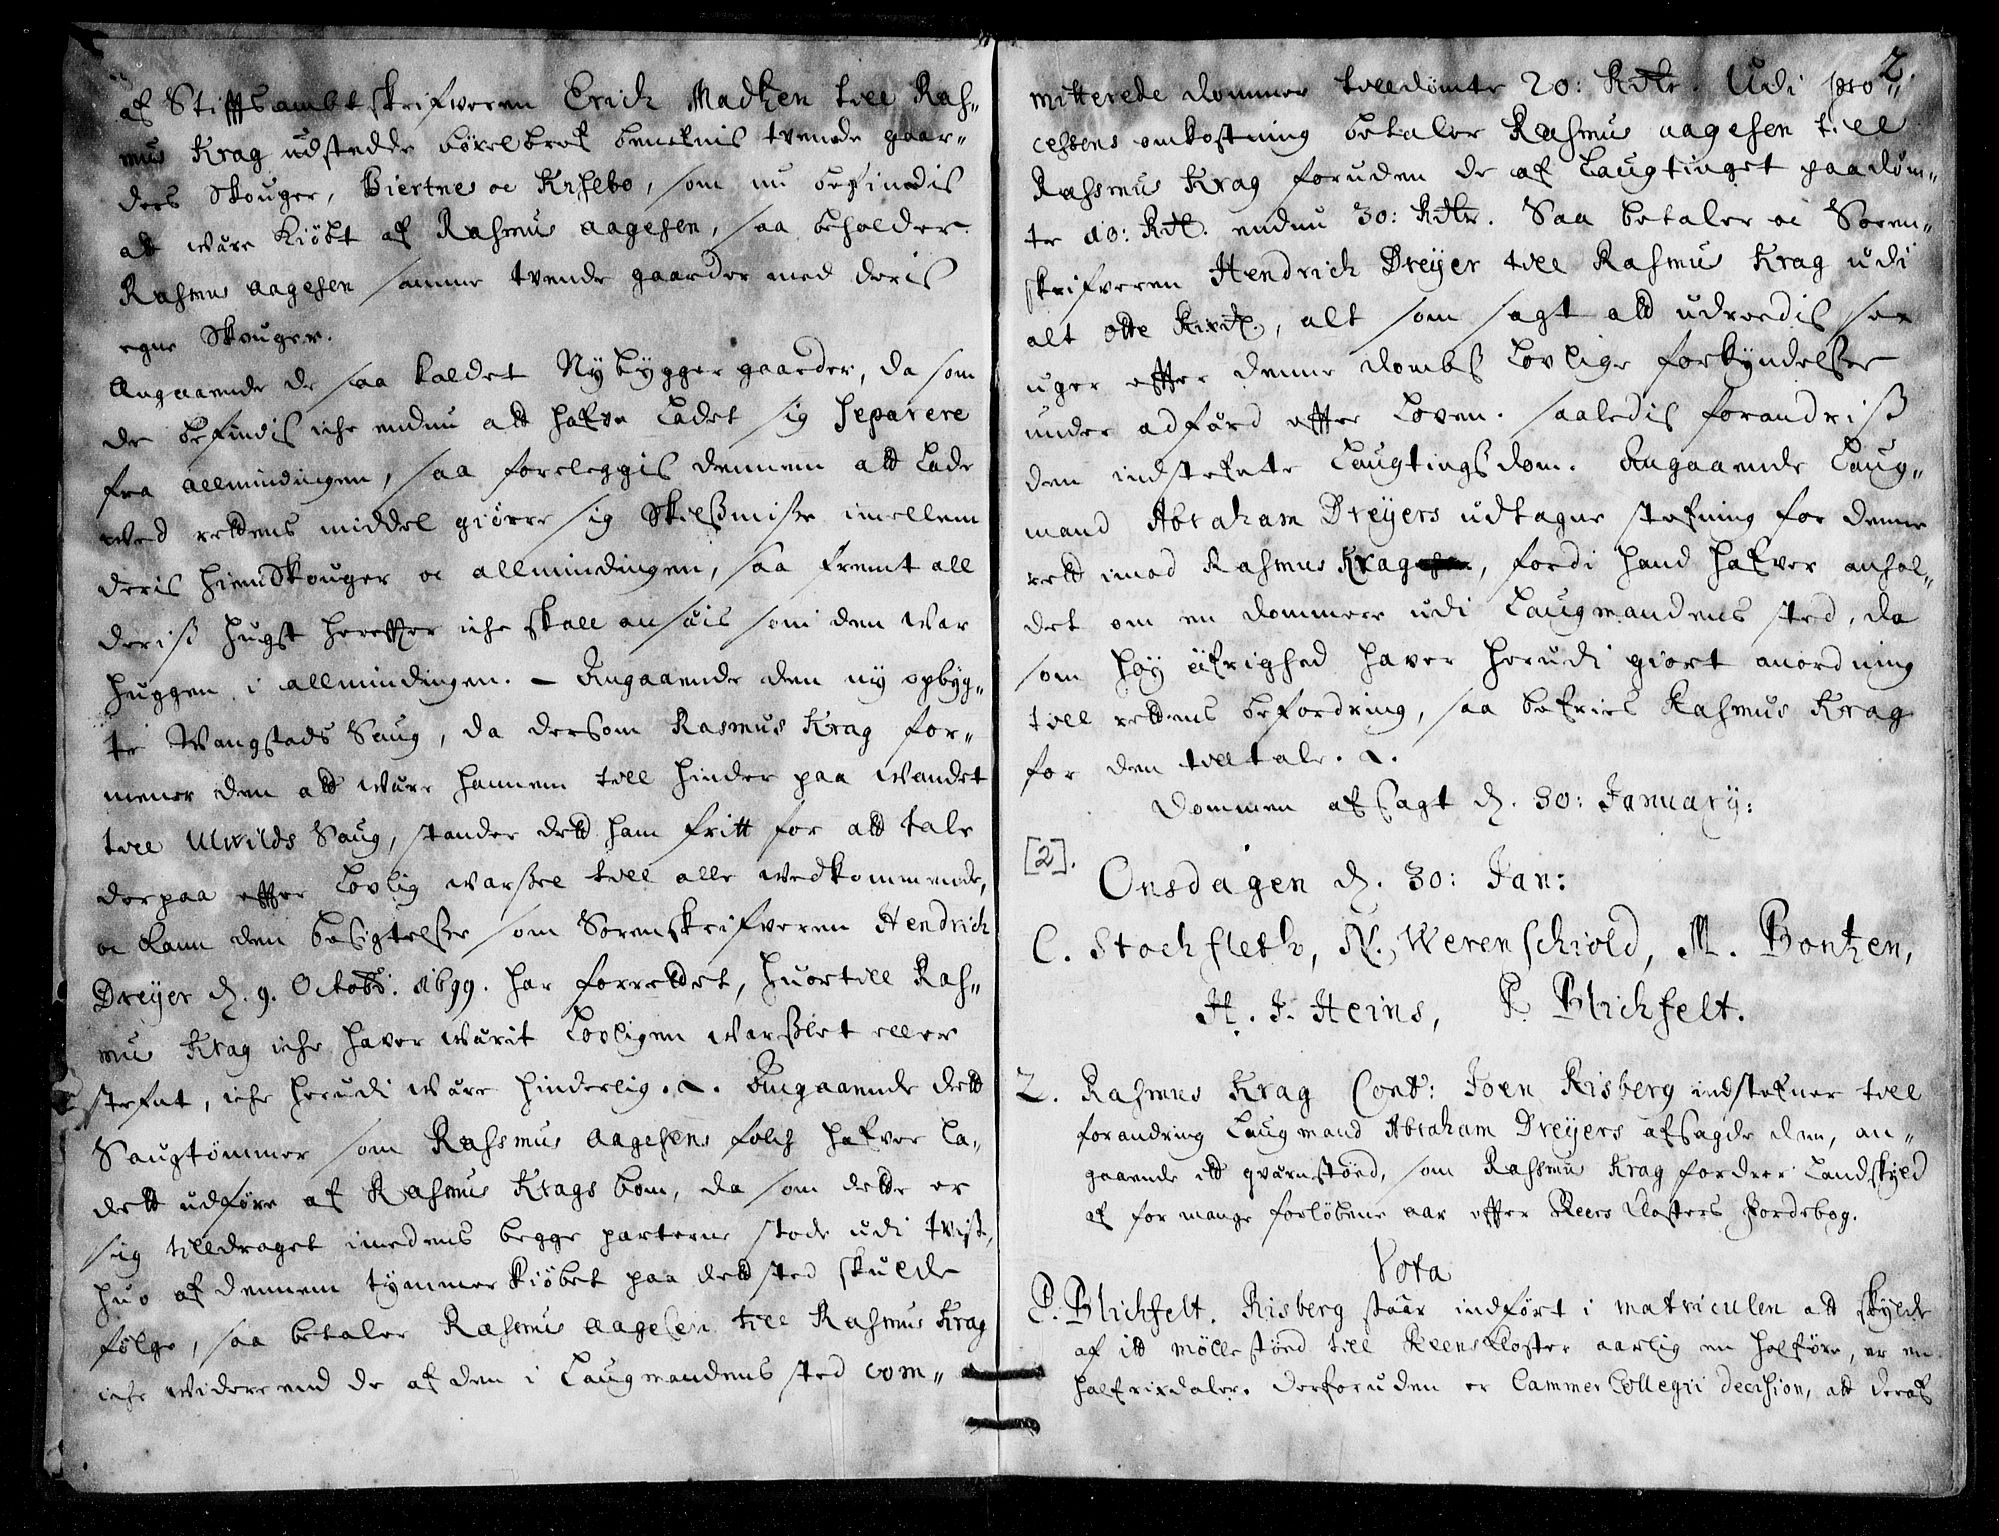 af Stifftsambtskrifveren Erich Madtzen till Ras„
mus Krag udstedde bøxelbref benefnis tvende gaar„
ders Skouger, Biertnes oc Krischebo, som nu befindis
att være kiøbt af Rasmus Aagesen, saa beholder
Rasmus Aagesen samme tvende gaarder med deris
egne Skouger.
Angaaende de saa kaldet Nybygger gaarder, da som
de befindis iche endnu att hafve ladet sig separere
fra allmindingen, saa foreleggis dennem att lade
ved rettens middel giøre sig Skielsmisse imellem
deris hiemskouger oc allmindingen, saa fremt all
deris hugst hereffter iche skall ansees som den var
huggen i allmindingen. – Angaaende den ny opbyg„
te Wangstads Saug, da dersom Rasmus Krag for„
mener den att være hannem till hinder paa Wandet
till Ulvilds Saug, stander dett ham fritt for att tale
derpaa effter lovlig varsel till alle vedkommende,
oc kann den besigtelse som Sorenskrifveren Hendrich
Dreyer d. 9. Octobr: 1699. har forrettet, huortill Ras„
mus Krag iche haver værit lovligen varslet eller
stefnt, iche herudi være hinderlig. Angaaende dett
Saugtømmer som Rasmus Aagesens folch hafver la„
dett udføre af Rasmus Krags bom, da som dette er
sig tilldraget imedens begge parterne stode udi tvist,
huo af dennem tømmer kiøbet paa dett sted skulde
følge, saa betaler Rasmus Aagesen till Rasmus Krag
iche videre end de af den i Laugmandens sted com„
2.
mitterede dommer tilldømte 20: Rdlr. Udi pro„
cessens omkostning betaler Rasmus Aagesen till
Rasmus Krag foruden de af Laugtinget paadøm„
te 10: Rdl. endnu 30: Rdlr. Saa betaler oc Soren„
skrifveren Hendrich Dreyer till Rasmus Krag udi
alt otte Rixdl., alt som sagt att udredis sex
uger effter denne dombs lovlige forkyndelse
under adfærd effter loven. Saaledis forandris
den indstefnte Laugtings dom. Angaaende Laug„
mand Abraham Dreyers udtagne stefning for denne
rett imod Rasmus Krag, fordi hand hafver anhol„
det om en dommer udi Laugmandens sted, da
som høy øfrighed haver herudi giort anordning
till rettens befordring, saa befries Rasmus Krag
for den tilltale.
Dommen afsagt d. 30: January:
[2].
Onsdagen d. 30: Jan:
C. Stochfleth, N. Werenschiold, M. Bontzen,
H. J. Heins, P Blichfelt.
2. Rasmus Krag Cont: Joen Risberg indstefner till
forandring Laugmand Abraham Dreyers afsagde dom, an„
gaaende itt qværnstøed, som Rasmus Krag fordrer Landskyld
af for mange forløbene aar effter Reens Closters Jordebog.
Vota
P. Blichfelt. Risberg staar indført i matriculen att skylde
af itt møllestøed till Reens Closter aarlig en halføre, er en
half rixdaler. Derforuden er Cammer Collegii decision, att deraf